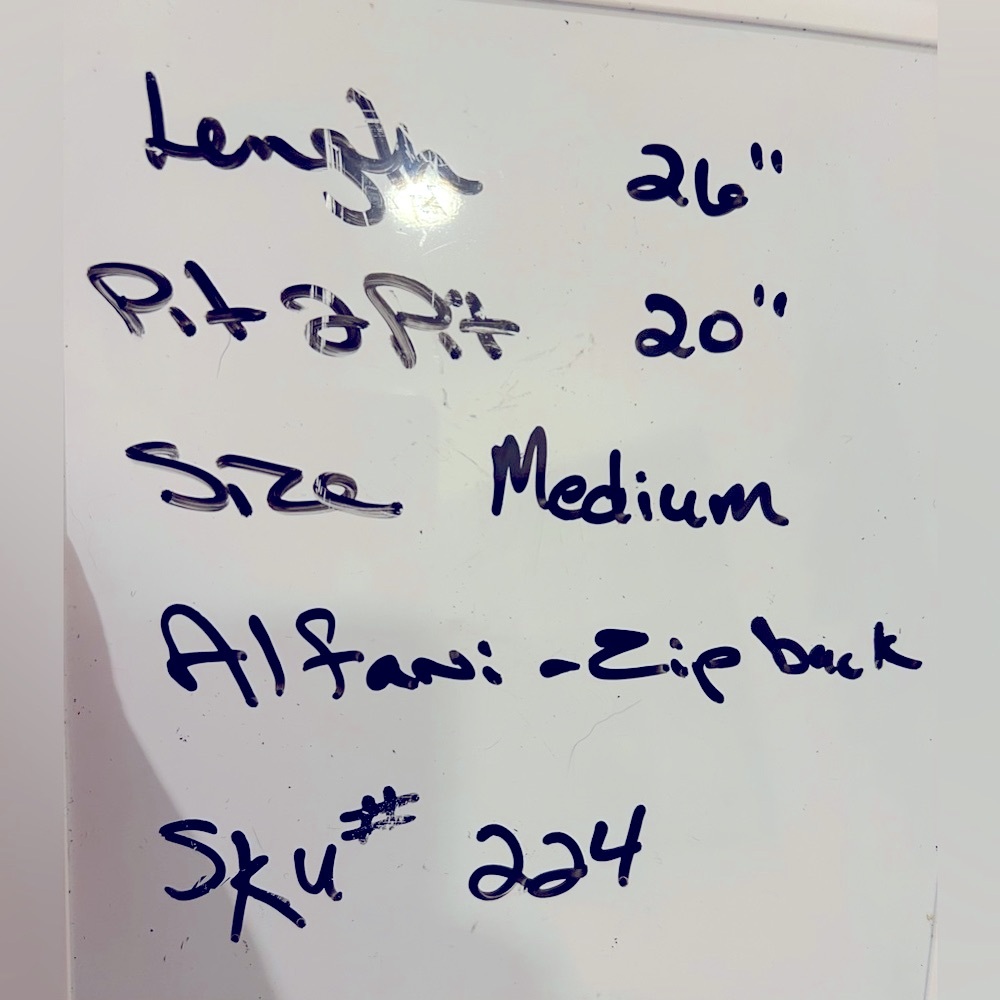 Length 26"
Pit 2 Pit 20"
Size Medium
Alfani - Zip back
Sku# 224